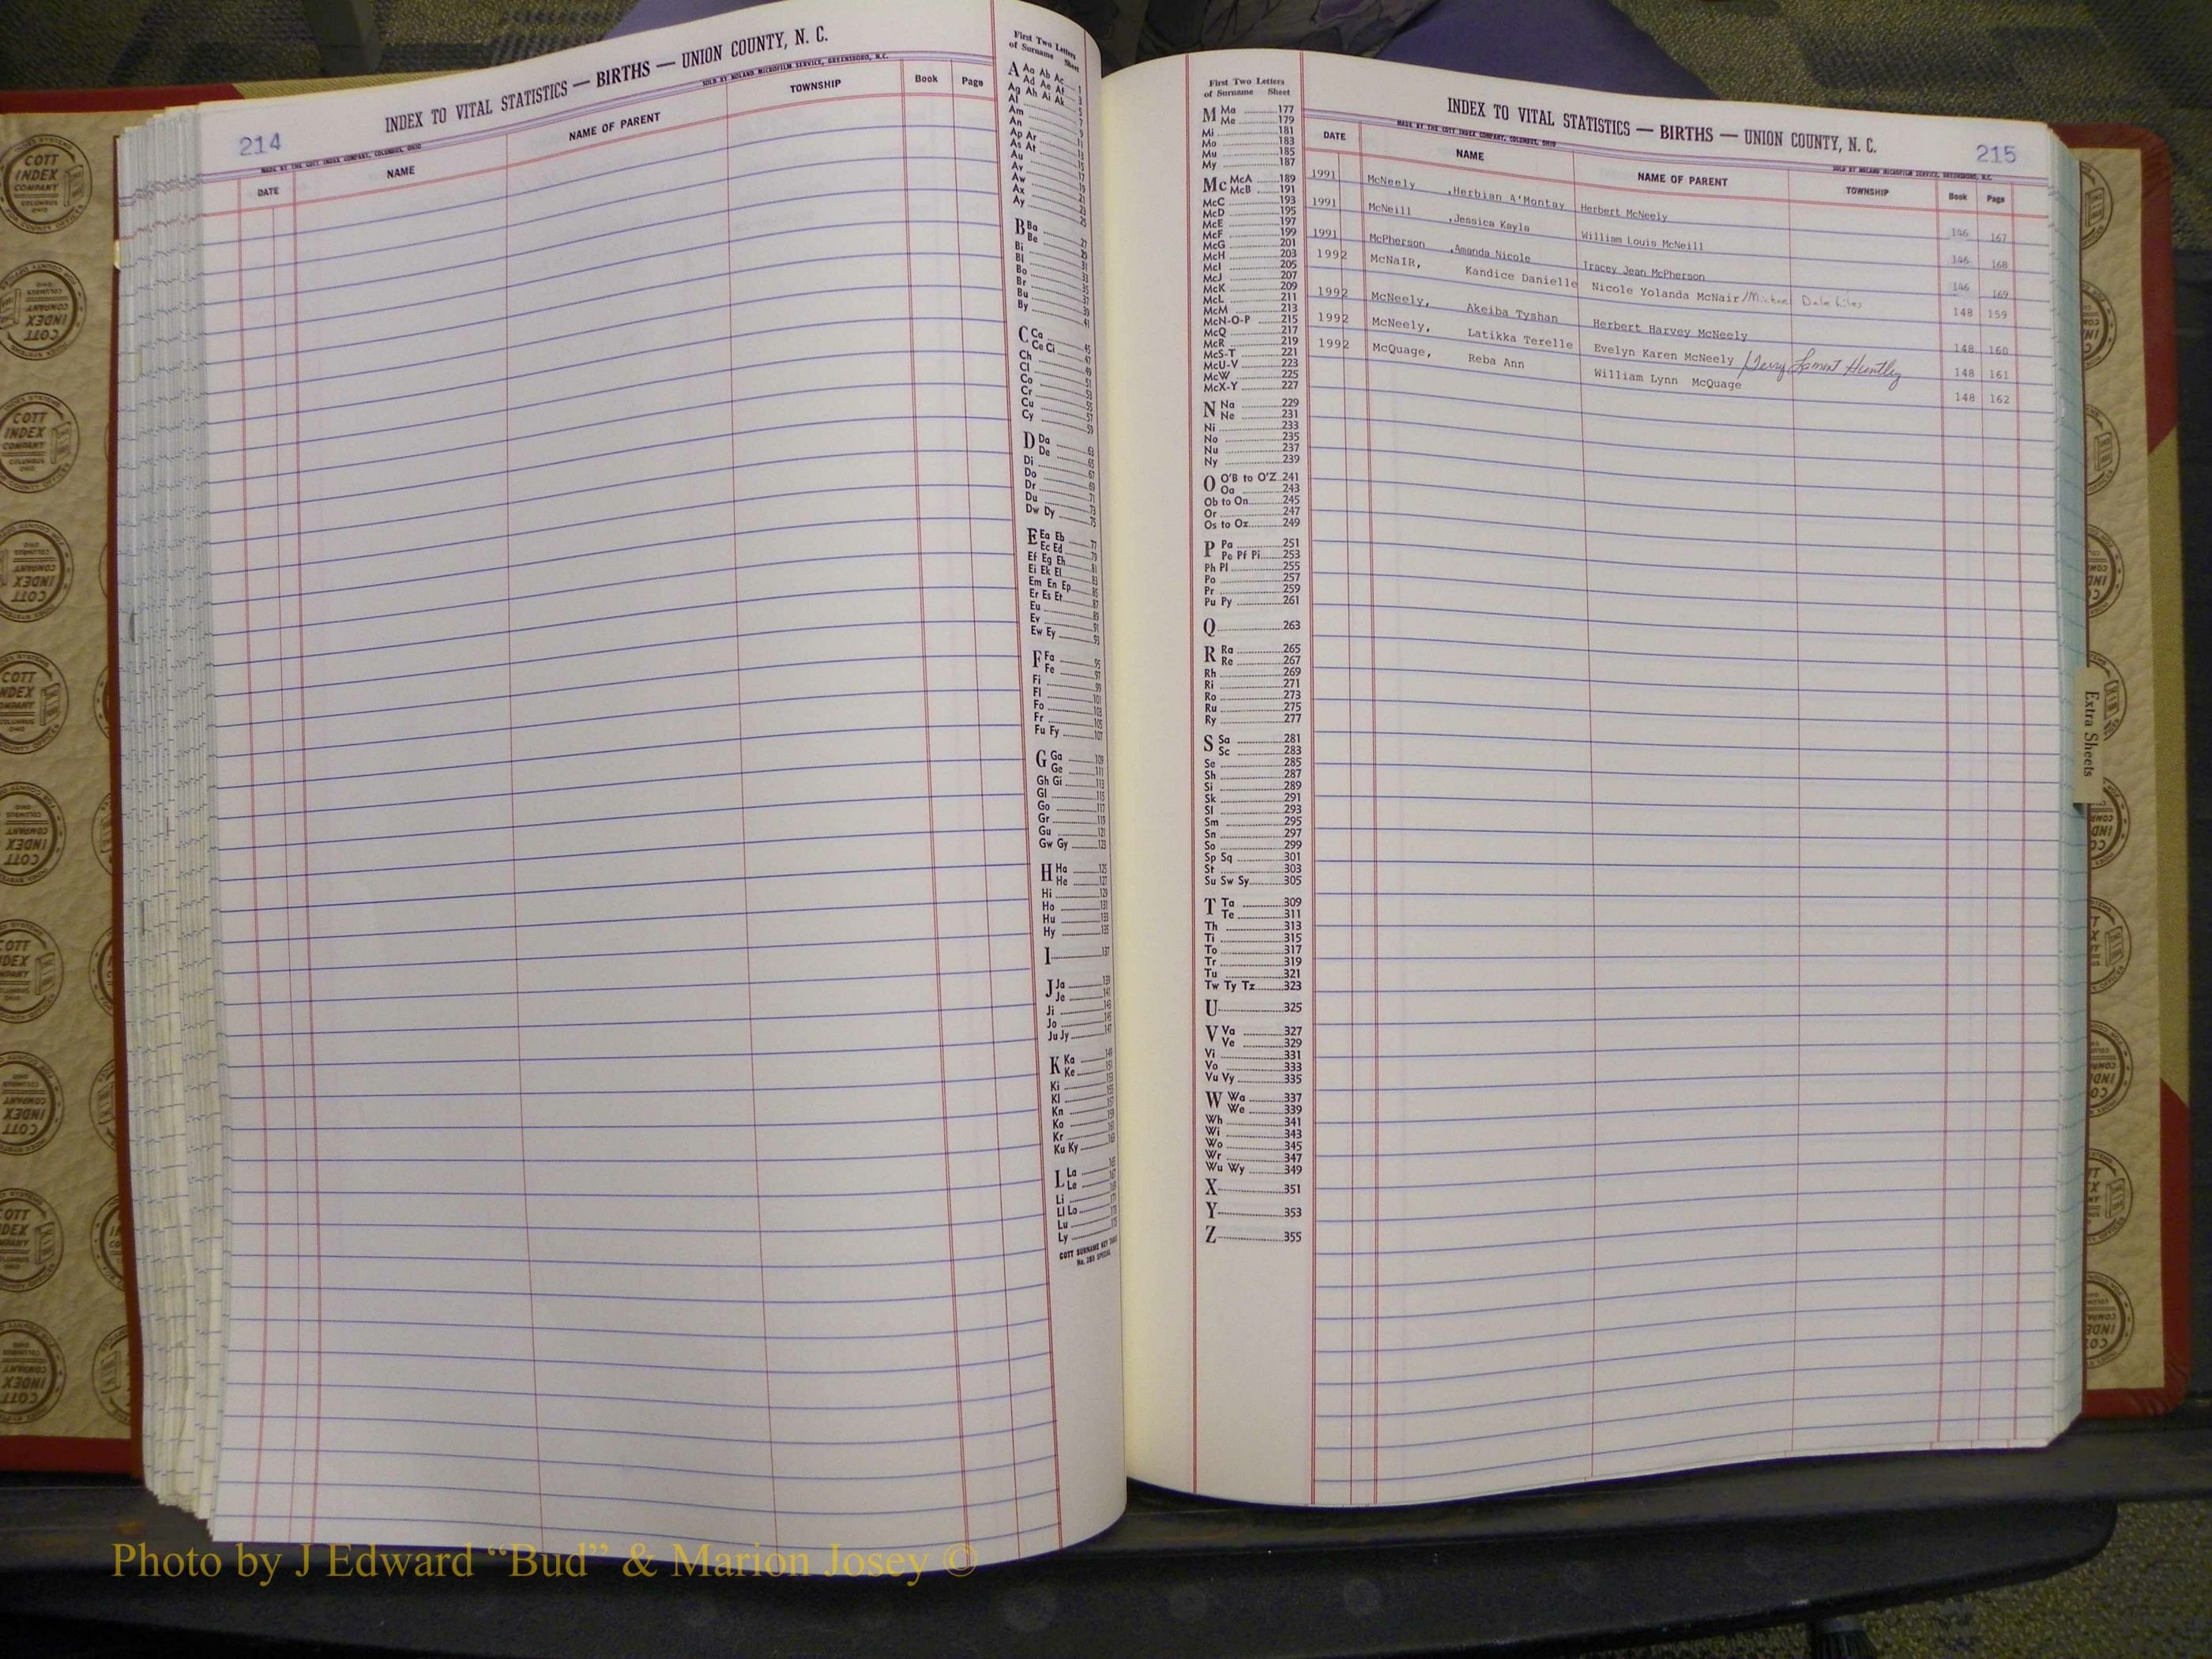 214
INDEX TO VITAL STATISTICS — BIRTHS — UNION COUNTY, N. C.
MADE BY THE COTT INDEX COMPANY, COLUMBUS, OHIO
SOLD BY NOLAND MICROFILM SERVICE, GREENSBORO, N.C.
DATE NAME NAME OF PARENT TOWNSHIP Book Page
First Two Letters
of Surname Sheet
A Aa Ab Ac 1
Ad Ae Af 3
Ag Ah Ai Ak 5
Al 7
Am 9
An 11
Ap Ar 13
As At 15
Au 17
Av 19
Aw 21
Ax 23
Ay 25
B Ba 27
Be 29
Bi 31
Bl 33
Bo 35
Br 37
Bu 39
By 41
C Ca 45
Ce Ci 47
Ch 49
Cl 51
Co 53
Cr 55
Cu 57
Cy 59
D Da 63
De 65
Di 67
Do 69
Dr 71
Du 73
Dw Dy 75
E Ea Eb 77
Ec Ed 79
Ef Eg Eh 81
Ei Ek El 83
Em En Ep 85
Er Es Et 87
Eu 89
Ev 91
Ew Ey 93
F Fa 95
Fe 97
Fi 99
Fl 101
Fo 103
Fr 105
Fu Fy 107
G Ga 109
Ge 111
Gh Gi 113
Gl 115
Go 117
Gr 119
Gu 121
Gw Gy 123
H Ha 125
He 127
Hi 129
Ho 131
Hu 133
Hy 135
I 137
J Ja 139
Je 141
Ji 143
Jo 145
Ju Jy 147
K Ka 149
Ke 151
Ki 153
Kl 155
Kn 157
Ko 159
Kr 161
Ku Ky 163
L La 165
Le 167
Li
Ll Lo
Lu
Ly
COTT SURNAME KEY TABLE
No. SPECIAL
First Two Letters
of Surname Sheet
M Ma 177
Me 179
Mi 181
Mo 183
Mu 185
My 187
Mc McA 189
McB 191
McC 193
McD 195
McE 197
McF 199
McG 201
McH 203
McI 205
McJ 207
McK 209
McL 211
McM 213
McN-O-P 215
McQ 217
McR 219
McS-T 221
McU-V 223
McW 225
McX-Y 227
N Na 229
Ne 231
Ni 233
No 235
Nu 237
Ny 239
O O'B to O'Z 241
Oa 243
Ob to On 245
Or 247
Os to Oz 249
P Pa 251
Pe Pf Pi 253
Ph Pl 255
Po 257
Pr 259
Pu Py 261
Q 263
R Ra 265
Re 267
Rh 269
Ri 271
Ro 273
Ru 275
Ry 277
S Sa 281
Sc 283
Se 285
Sh 287
Si 289
Sk 291
Sl 293
Sm 295
Sn 297
So 299
Sp Sq 301
St 303
Su Sw Sy 305
T Ta 309
Te 311
Th 313
Ti 315
To 317
Tr 319
Tu 321
Tw Ty Tz 323
U 325
V Va 327
Ve 329
Vi 331
Vo 333
Vu Vy 335
W Wa 337
We 339
Wh 341
Wi 343
Wo 345
Wr 347
Wu Wy 349
X 351
Y 353
Z 355
INDEX TO VITAL STATISTICS — BIRTHS — UNION COUNTY, N. C.
215
MADE BY THE COTT INDEX COMPANY, COLUMBUS, OHIO
SOLD BY NOLAND MICROFILM SERVICE, GREENSBORO, N.C.
DATE NAME NAME OF PARENT TOWNSHIP Book Page
1991 McNeely ,Herbian A'Montay Herbert McNeely 146 167
1991 McNeill ,Jessica Kayla William Louis McNeill 146 168
1991 McPherson ,Amanda Nicole Tracey Jean McPherson 146 169
1992 McNaIR, Kandice Danielle Nicole Yolanda McNair/Michael Dale Liles 148 159
1992 McNeely, Akeiba Tyshan Herbert Harvey McNeely 148 160
1992 McNeely, Latikka Terelle Evelyn Karen McNeely /Terry Lamont Huntley 148 161
1992 McQuage, Reba Ann William Lynn McQuage 148 162
Extra Sheets
COTT
INDEX
COMPANY
COLUMBUS
OHIO
Photo by J Edward “Bud” & Marion Josey ©